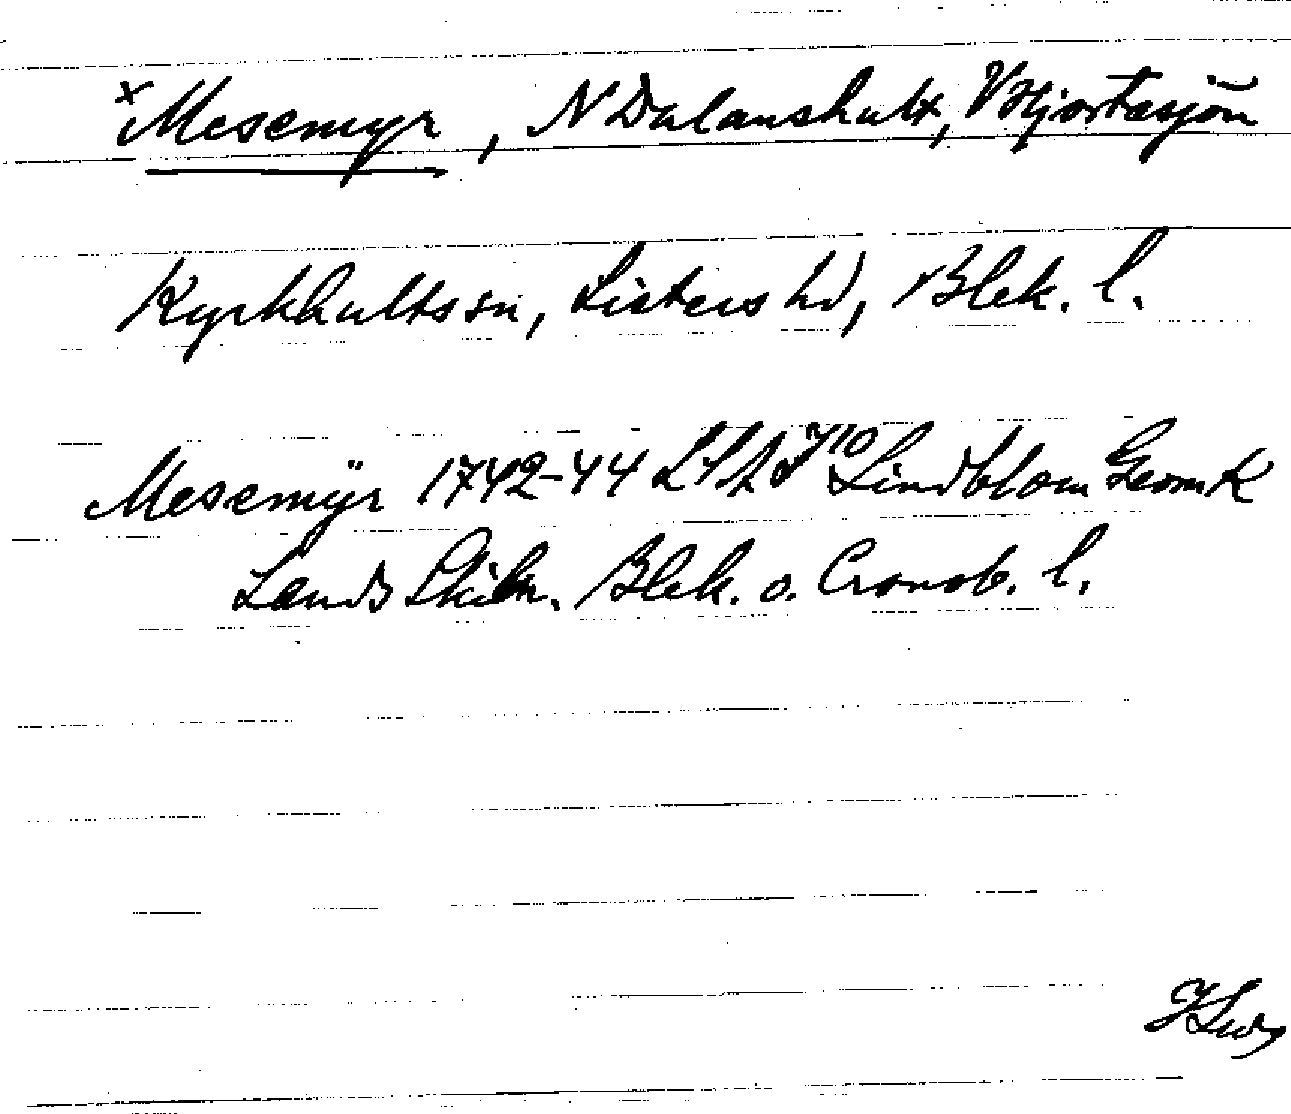 x Mesemyr, N Dalanshult, V Hjortasjön
Kyrkhults sn, Listers hd, Blek. l.
Mesemÿr 1742-44 Lindblom Geom K
Lands Skiln. Blek. o. Cronob. l.